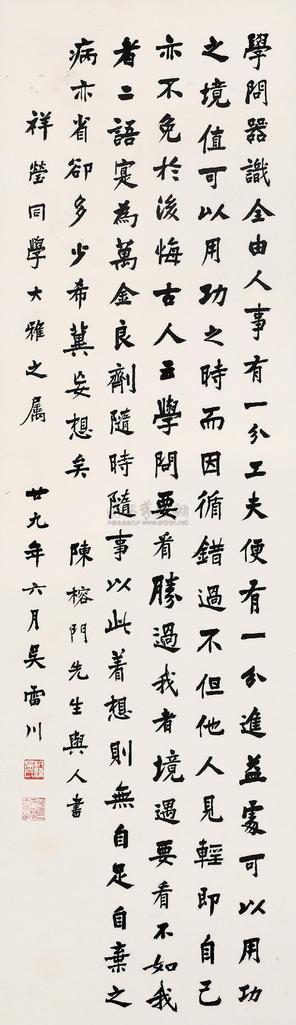 學問器識全由人事有一分工夫便有一分進益處可以用功
之境值可以用功之時而因循錯過不但他人見輕即自己
亦不免於後悔古人云學問要看勝過我者境遇要看不如我
者二語寔為萬金良劑隨時隨事以此着想則無自足自棄之
病亦省卻多少希冀妄想矣 陳榕門先生與人書
祥瑩同學大雅之屬 廿九年六月吳雷川